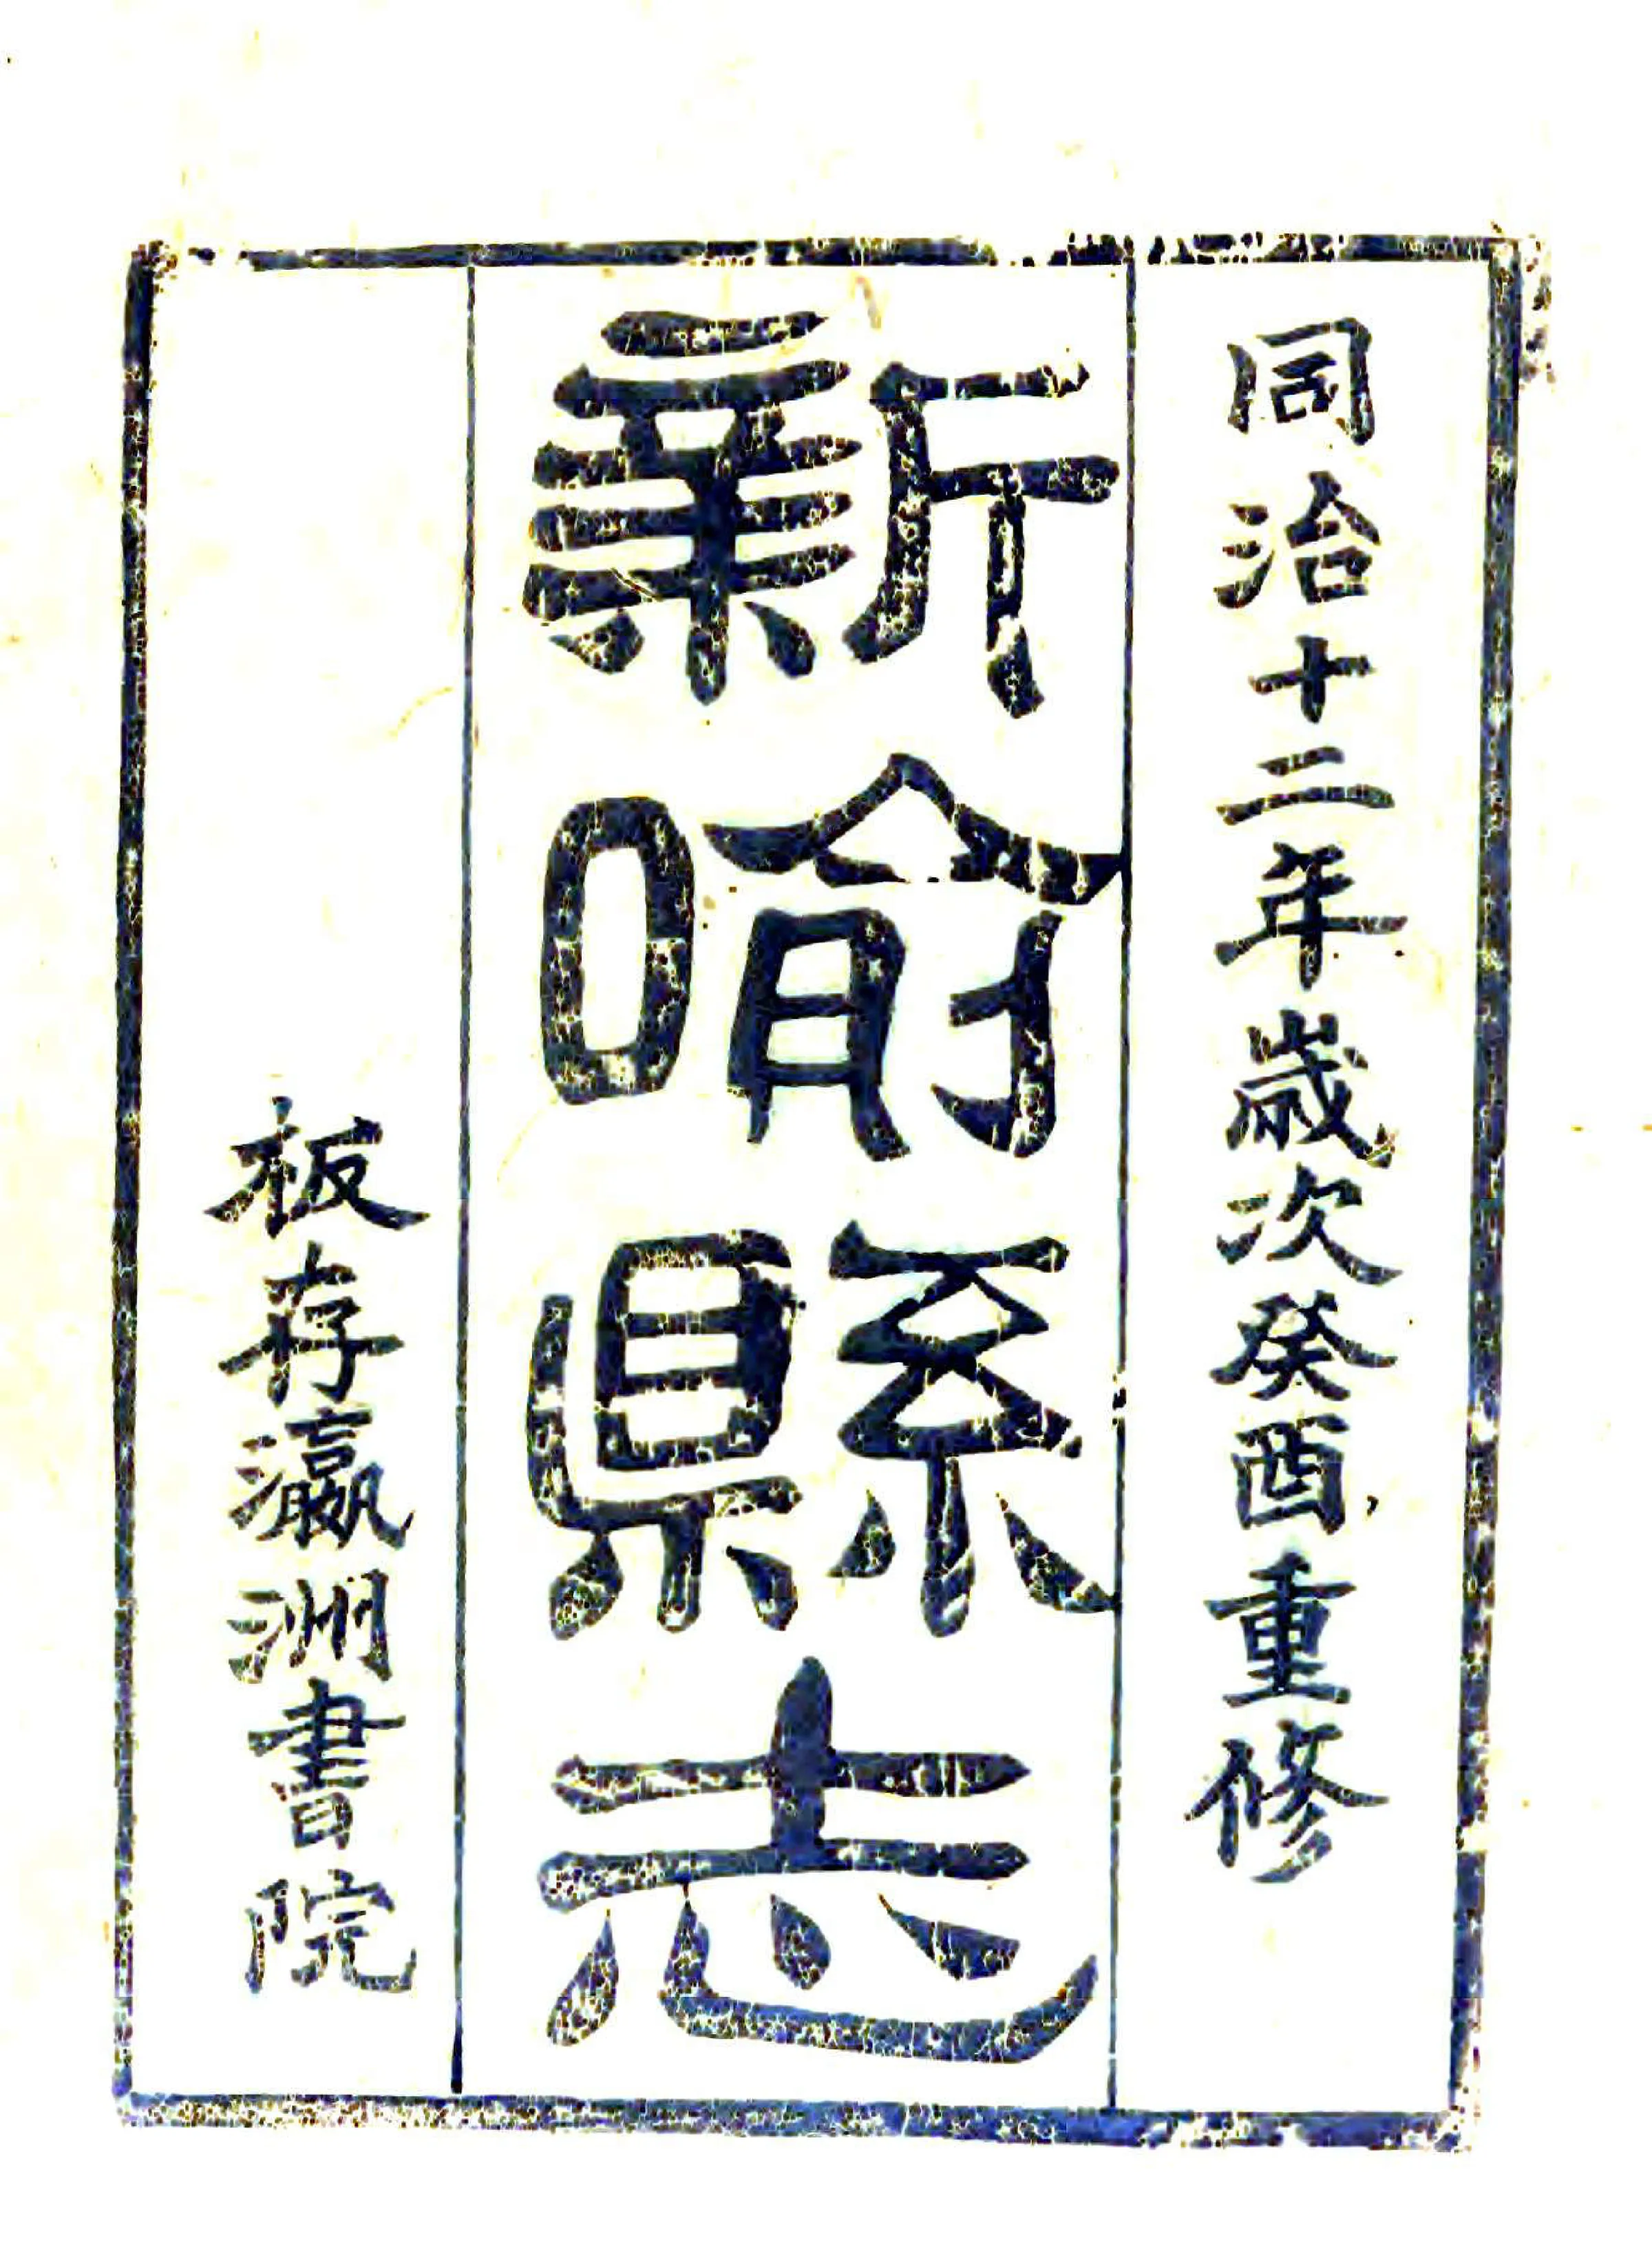 同治十二年歲次癸酉重修
新喻縣志
板存瀛洲書院